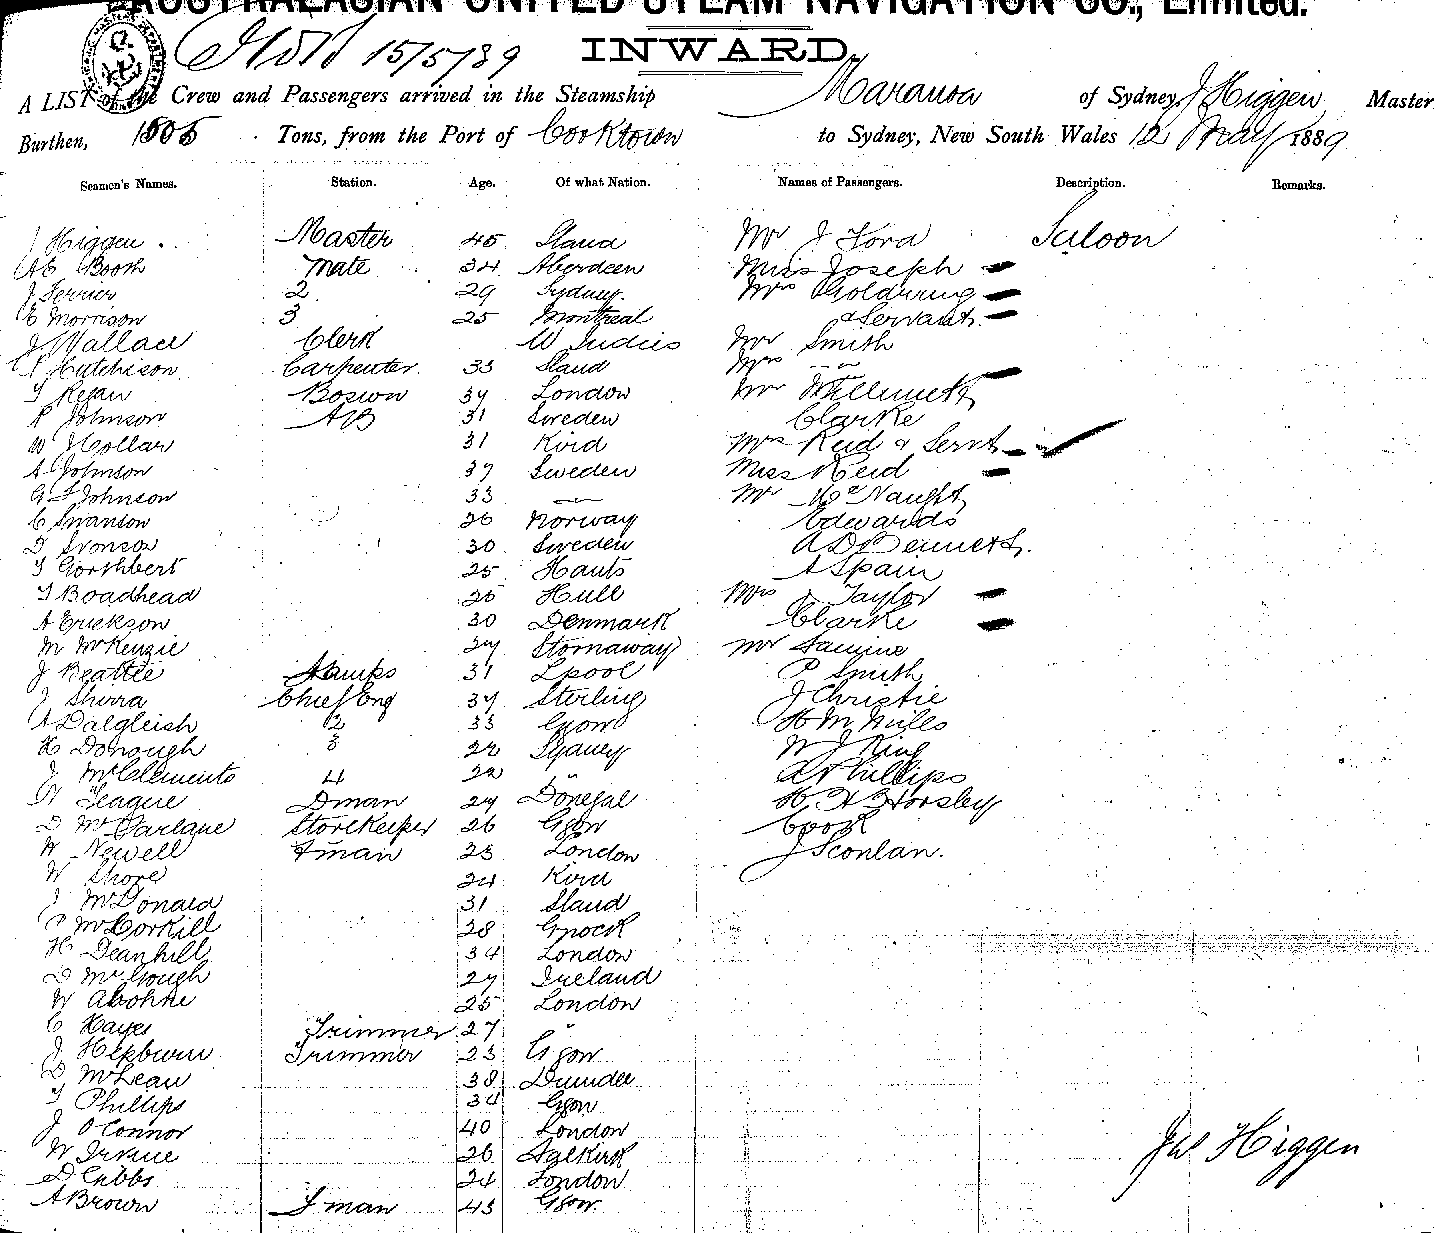 AUSTRALASIAN UNITED STEAM NAVIGATION CO., Limited.
15/5/89 INWARD
A LIST of the Crew and Passengers arrived in the Steamship Maranoa of Sydney, J Higgen Master
Burthen, 1505 Tons, from the Port of Cooktown to Sydney, New South Wales 12 May 1889
Seamen's Names. Station. Age. Of what Nation. Names of Passengers. Description. Remarks.
J Higgen Master 45 Sland Mr J Ford Saloon
A C Booth Mate 34 Aberdeen Miss Joseph
J Ferrier 2 29 Sydney Mrs Goldring
E Morrison 3 25 Montreal & Servant
J Wallace Clerk W Indies Mr Smith
P Hutchison Carpenter 33 Sland Mrs
T Regan Boswn 34 London Mr Willmett
P Johnson AB 31 Sweden Clarke
W J Collar 31 Kird Mrs Reid & Servt
A Johnson 37 Sweden Miss Reid
G F Johnson 33 Mr McNaught
C Swanson 26 Norway Edwards
D Svonson 30 Sweden A D Bennett
T Gorthbert 25 Hants A Spain
T Boadhead 25 Hull Mrs Taylor
A Erickson 30 Denmark Clarke
M McKenzie 24 Stornaway Mr
J Beattie 31 Lpool P Smith
J Shirra Chief Eng 37 Sterling J Christie
A Dalgleish 2 33 Ggow H M Nilles
H Donough 3 22 Sydney W J King
J McClements 4 22 " A Phillips
W Teague Dman 24 Donegal H H Horsley
D McFarlane Storekeeper 26 Ggow Cook
W Newell Fman 23 London J Sconlan.
W Shore 24 Kird
J McDonald 31 Sland
P McCorkill 28 Gnock
H Deanhill 34 London
D McGough 27 Ireland
W Abohne 25 London
C Hayes Trimmer 27 "
J Hepburn Trimmer 23 Ggow
D McLean 38 Dundee
T Phillips 34 Ggow
J O'Connor 40 London
W Irvine 26 Falkirk
D Cubbs 24 London
A Brown Fman 43 Ggow
Jas Higgen